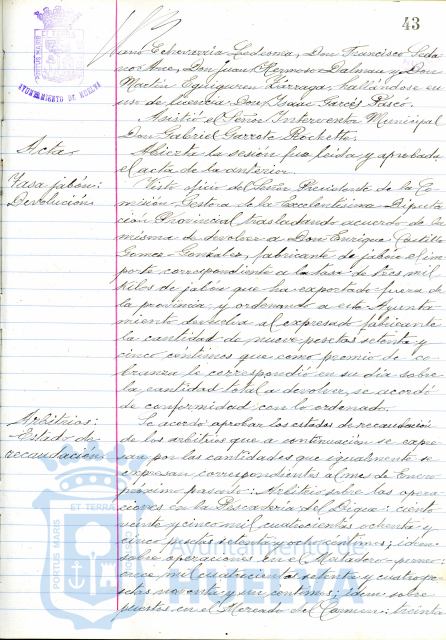 43
AYUNTAMIENTO DE HUELVA
Echeverria Ledesma, Don Francisco Seda
no Arce, Don Juan Reynoso Dalmau y Don
Martín Eguiguren Lizarraga, hallándose en
uso de licencia Don Isaac Garcés Pascó.
Asistió el Señor Interventor Municipal
Don Gabriel Garrote Rochette.
Acta
Abierta la sesión fue leida y aprobada
el acta de la anterior.
Tasa jabón:
Devolución
Visto oficio del Señor Presidente de la Co
misión Gestora de la Excelentísima Diputa
ción Provincial trasladando acuerdo de la
misma de devolver a Don Enrique Castilla
Gomez Gonzalez, fabricante de jabón el im
porte correspondiente a la tasa de tres mil
kilos de jabón que ha exportado fuera de
la provincia y ordenando a este Ayunta
miento devuelva al expresado fabricante
la cantidad de nueve pesetas setenta y
cinco céntimos que como premio de co
branza le correspondió en su día sobre
la cantidad total a devolver, se acordó
de conformidad con lo ordenado.
Arbitrios:
Estado de
recaudación
Se acordó aprobar los estados de recaudación
de los arbitrios que a continuación se expre
san por las cantidades que igualmente se
expresan, correspondientes al mes de Enero
próximo pasado: Arbitrio sobre las opera
ciones en la Pescadería del Dique: ciento
veinte y cinco mil cuatrocientas ochenta y
cinco pesetas setenta y ocho céntimos; idem
sobre operaciones en el Matadero
once mil cuatrocientas setenta y cuatro pe
setas noventa y un céntimos; idem sobre
puestos en el Mercado del Carmen: treinta
PORTUS MARIS ET TERRAE
Ayuntamiento de